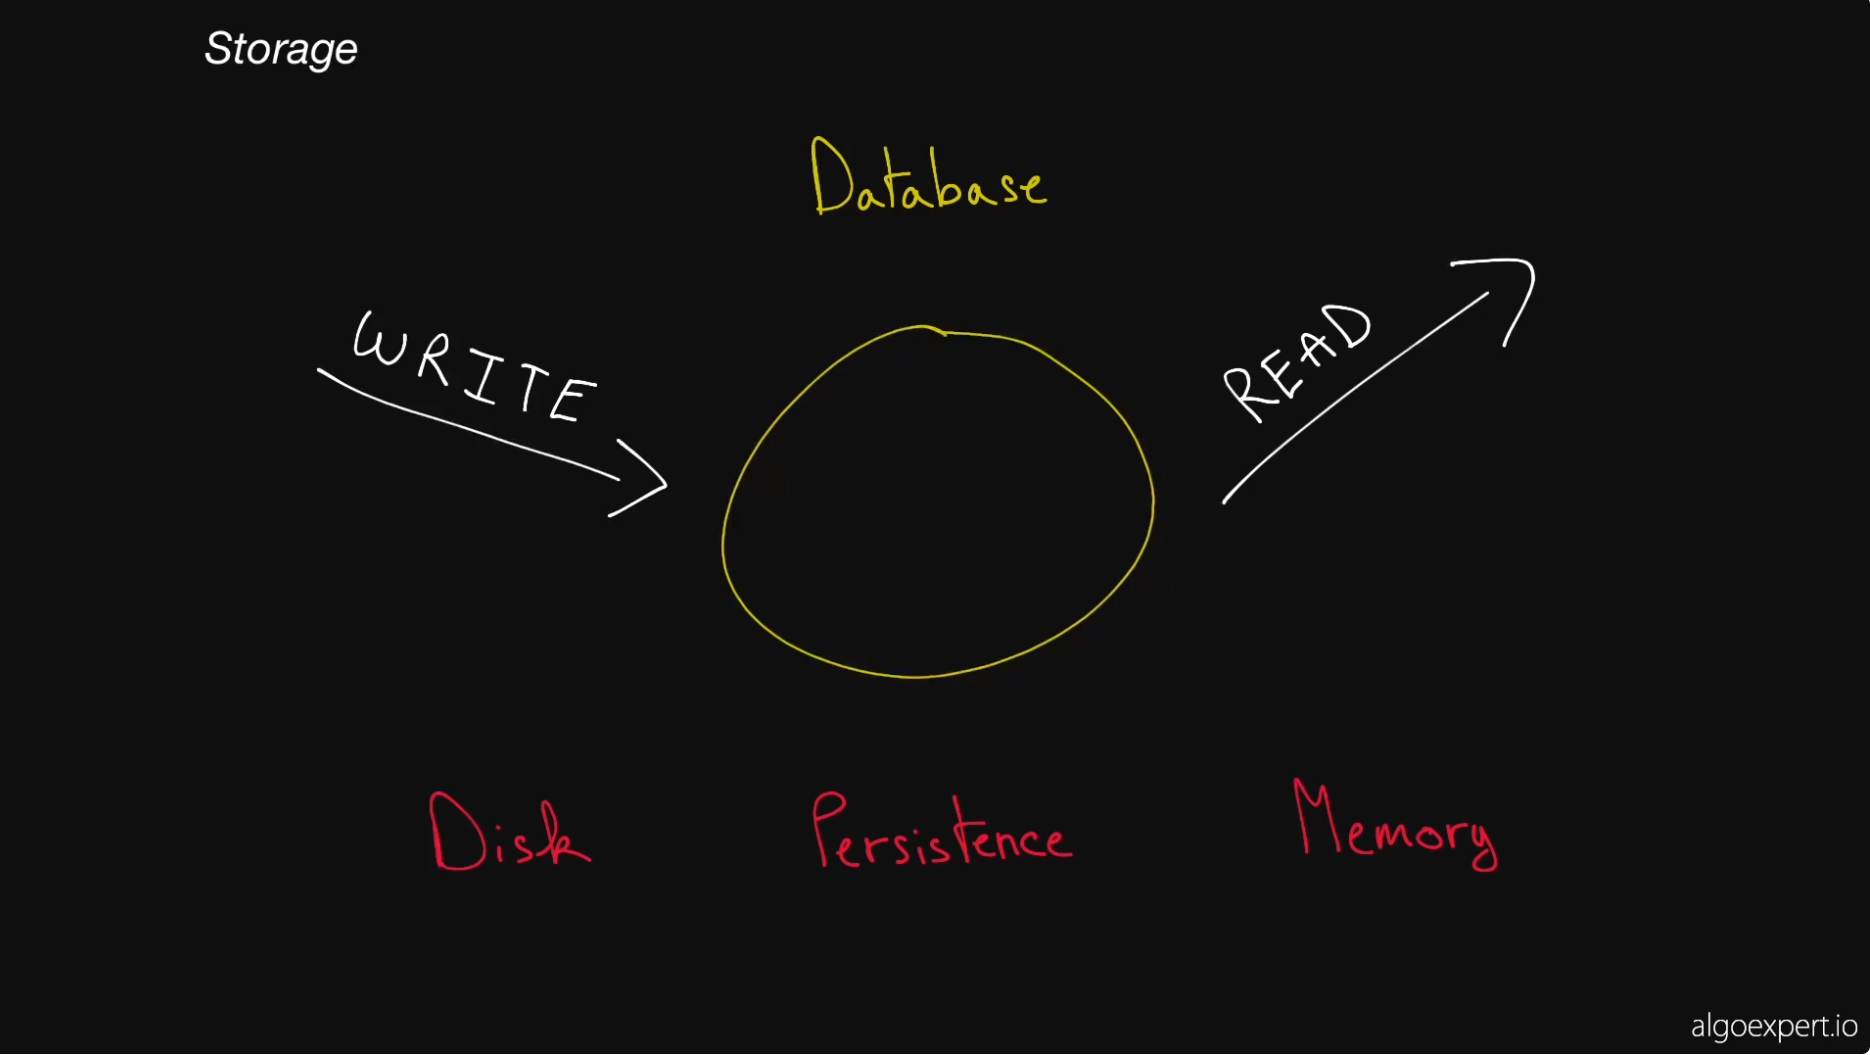 Storage
Database
WRITE
READ
Disk
Persistence
Memory
algoexpert.io